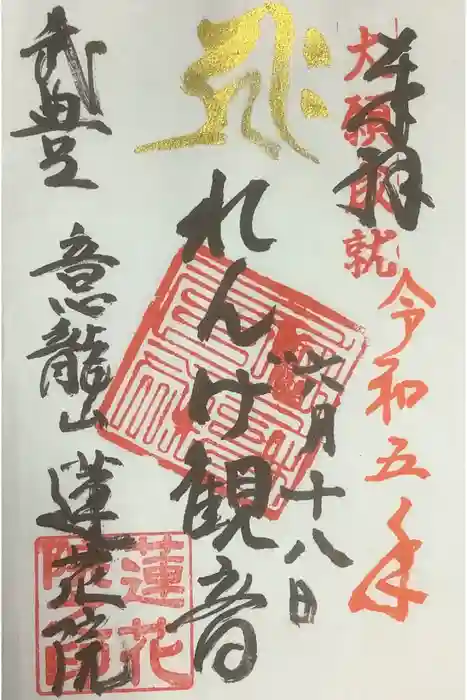 奉拝
大願成就
令和五年
六月十八日
れんげ観音
武豊 意龍山 蓮花院
蓮花
院印